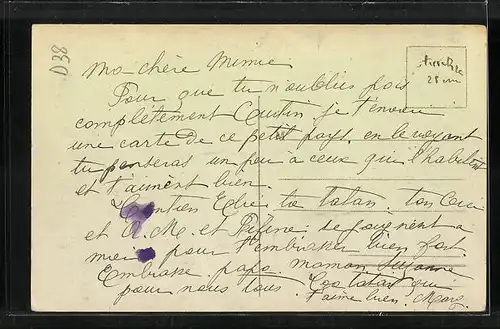 D38
28
Ma chère Mimie
Pour que tu n'oublies pas
complètement je t'envoie
une carte de ce petit pays, en le voyant
tu penseras un peu à ceux qui l'habitent
et t'aiment bien.
ta tatan. ton
et A. M. et se joignent à
moi pour t'embrasser bien fort.
Embrasse papa maman Suzanne
pour nous tous. tatan qui
t'aime bien.